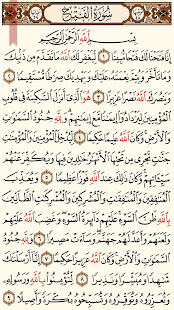 سُورَةُ الْفَتْحِ
بِسْمِ اللَّهِ الرَّحْمَٰنِ الرَّحِيمِ
إِنَّا فَتَحْنَا لَكَ فَتْحًا مُّبِينًا ١ لِّيَغْفِرَ لَكَ اللَّهُ مَا تَقَدَّمَ مِن ذَنبِكَ
وَمَا تَأَخَّرَ وَيُتِمَّ نِعْمَتَهُ عَلَيْكَ وَيَهْدِيَكَ صِرَٰطًا مُّسْتَقِيمًا ٢
وَيَنصُرَكَ اللَّهُ نَصْرًا عَزِيزًا ٣ هُوَ الَّذِي أَنزَلَ السَّكِينَةَ فِي قُلُوبِ
الْمُؤْمِنِينَ لِيَزْدَادُوا إِيمَٰنًا مَّعَ إِيمَٰنِهِمْ وَلِلَّهِ جُنُودُ السَّمَٰوَٰتِ
وَالْأَرْضِ وَكَانَ اللَّهُ عَلِيمًا حَكِيمًا ٤ لِّيُدْخِلَ الْمُؤْمِنِينَ وَالْمُؤْمِنَٰتِ
جَنَّٰتٍ تَجْرِي مِن تَحْتِهَا الْأَنْهَٰرُ خَٰلِدِينَ فِيهَا وَيُكَفِّرَ عَنْهُمْ
سَيِّـَٔاتِهِمْ وَكَانَ ذَٰلِكَ عِندَ اللَّهِ فَوْزًا عَظِيمًا ٥ وَيُعَذِّبَ
الْمُنَٰفِقِينَ وَالْمُنَٰفِقَٰتِ وَالْمُشْرِكِينَ وَالْمُشْرِكَٰتِ الظَّانِّينَ
بِاللَّهِ ظَنَّ السَّوْءِ عَلَيْهِمْ دَائِرَةُ السَّوْءِ وَغَضِبَ اللَّهُ
عَلَيْهِمْ وَلَعَنَهُمْ وَأَعَدَّ لَهُمْ جَهَنَّمَ وَسَاءَتْ مَصِيرًا ٦ وَلِلَّهِ جُنُودُ
السَّمَٰوَٰتِ وَالْأَرْضِ وَكَانَ اللَّهُ عَزِيزًا حَكِيمًا ٧ إِنَّا أَرْسَلْنَٰكَ شَٰهِدًا
وَمُبَشِّرًا وَنَذِيرًا ٨ لِّتُؤْمِنُوا بِاللَّهِ وَرَسُولِهِ
وَتُعَزِّرُوهُ وَتُوَقِّرُوهُ وَتُسَبِّحُوهُ بُكْرَةً وَأَصِيلًا ٩